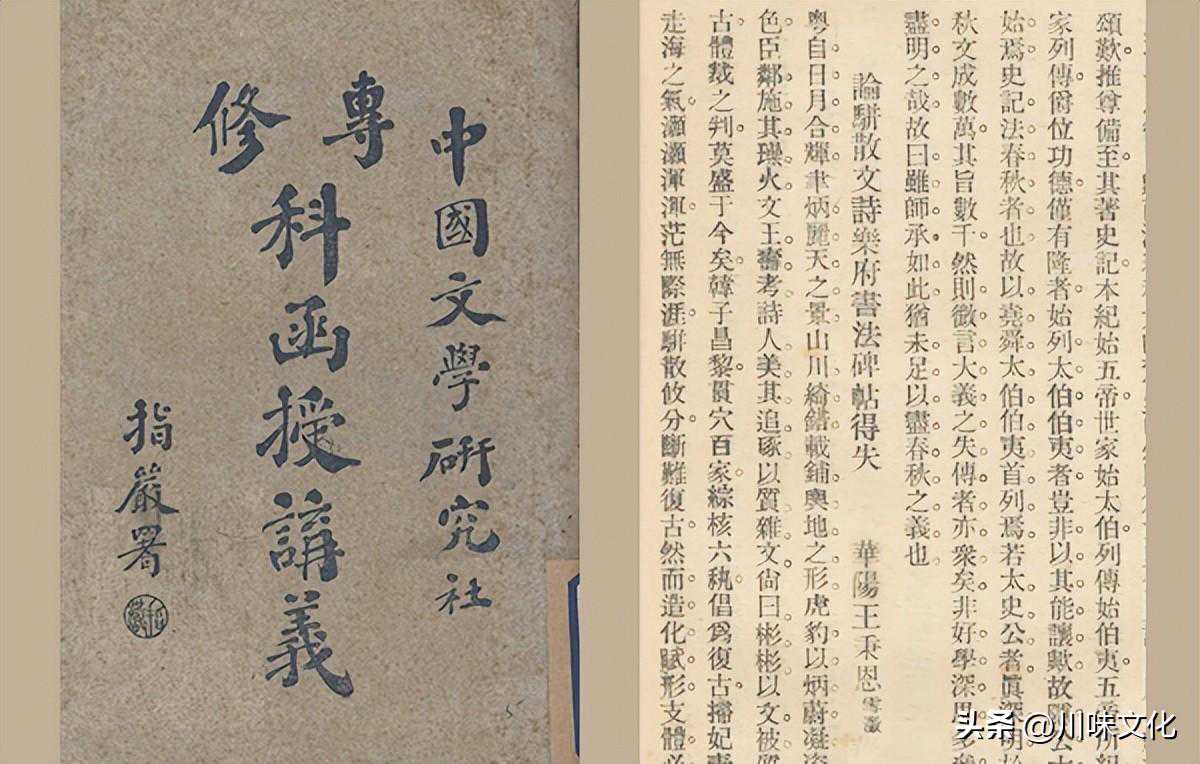 中國文學研究社
專修
科函授講義
指嚴署
頌歎推尊備至其著史記本紀始五帝世家始太伯列傳始伯夷五帝
家列傳爵位功德僅有隆者始列太伯伯夷者豈非以其能讓歟故
始焉史記法春秋者也故以堯舜太伯伯夷首列焉若太史公者眞深明
秋文成數萬其旨數千然則微言大義之失傳者亦衆矣非好學深思
盡明之哉故曰雖師承如此猶未足以盡春秋之義也
論駢散文詩樂府書法碑帖得失 華陽王秉恩雪澂
粤自日月合輝聿炳麗天之景山川綺錯載鋪輿地之形虎豹以炳蔚凝姿
色臣鄰施其璪火文王壽考詩人美其追琢以質雜文尙曰彬彬以文被質
古體裁之判莫盛于今矣韓子昌黎貫穴百家綜核六執倡爲復古掃妃
走海之氣灝灝渾渾茫無際涯駢散攸分斷難復古然而造化賦形支體必
头条@川味文化